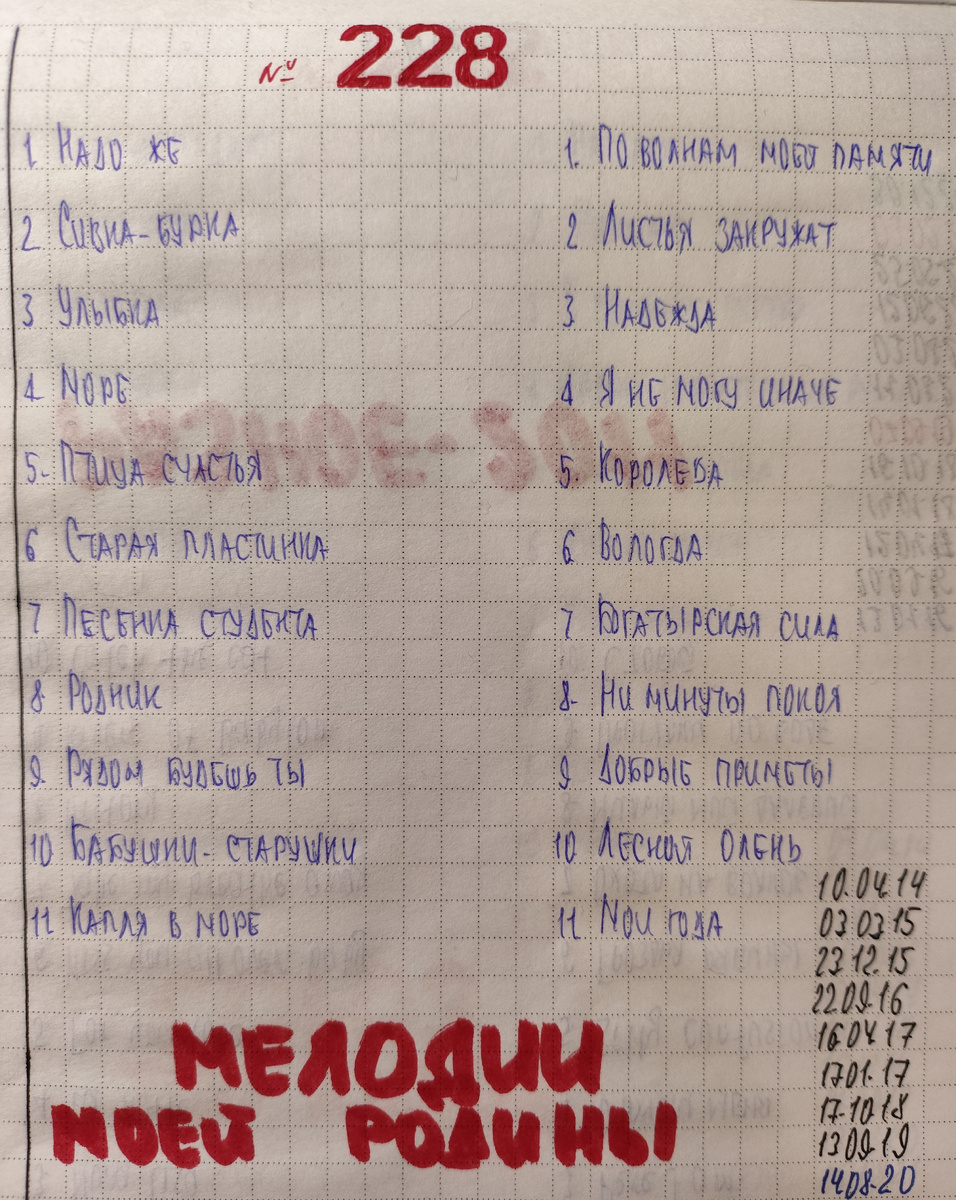 № 228
1 НАДО ЖЕ
2 СИВКА-БУРКА
3 УЛЫБКА
4 МОРЕ
5- ПТИЦА СЧАСТЬЯ
6 СТАРАЯ ПЛАСТИНКА
7 ПЕСЕНКА СТУДЕНТА
8 РОДНИК
9 РЯДОМ БУДЕШЬ ТЫ
10 БАБУШКИ-СТАРУШКИ
11 КАПЛЯ В МОРЕ
1. ПО ВОЛНАМ МОЕЙ ПАМЯТИ
2 ЛИСТЬЯ ЗАКРУЖАТ
3 НАДЕЖДА
4 Я НЕ МОГУ ИНАЧЕ
5. КОРОЛЕВА
6 ВОЛОГДА
7 БОГАТЫРСКАЯ СИЛА
8- НИ МИНУТЫ ПОКОЯ
9 ДОБРЫЕ ПРИМЕТЫ
10 ЛЕСНОЙ ОЛЕНЬ
11 МОИ ГОДА
10.04.14
03.03.15
23.12.15
22.09.16
16.04.17
17.01.17
17.10.18
13.09.19
14.08.20
МЕЛОДИИ
МОЕЙ РОДИНЫ